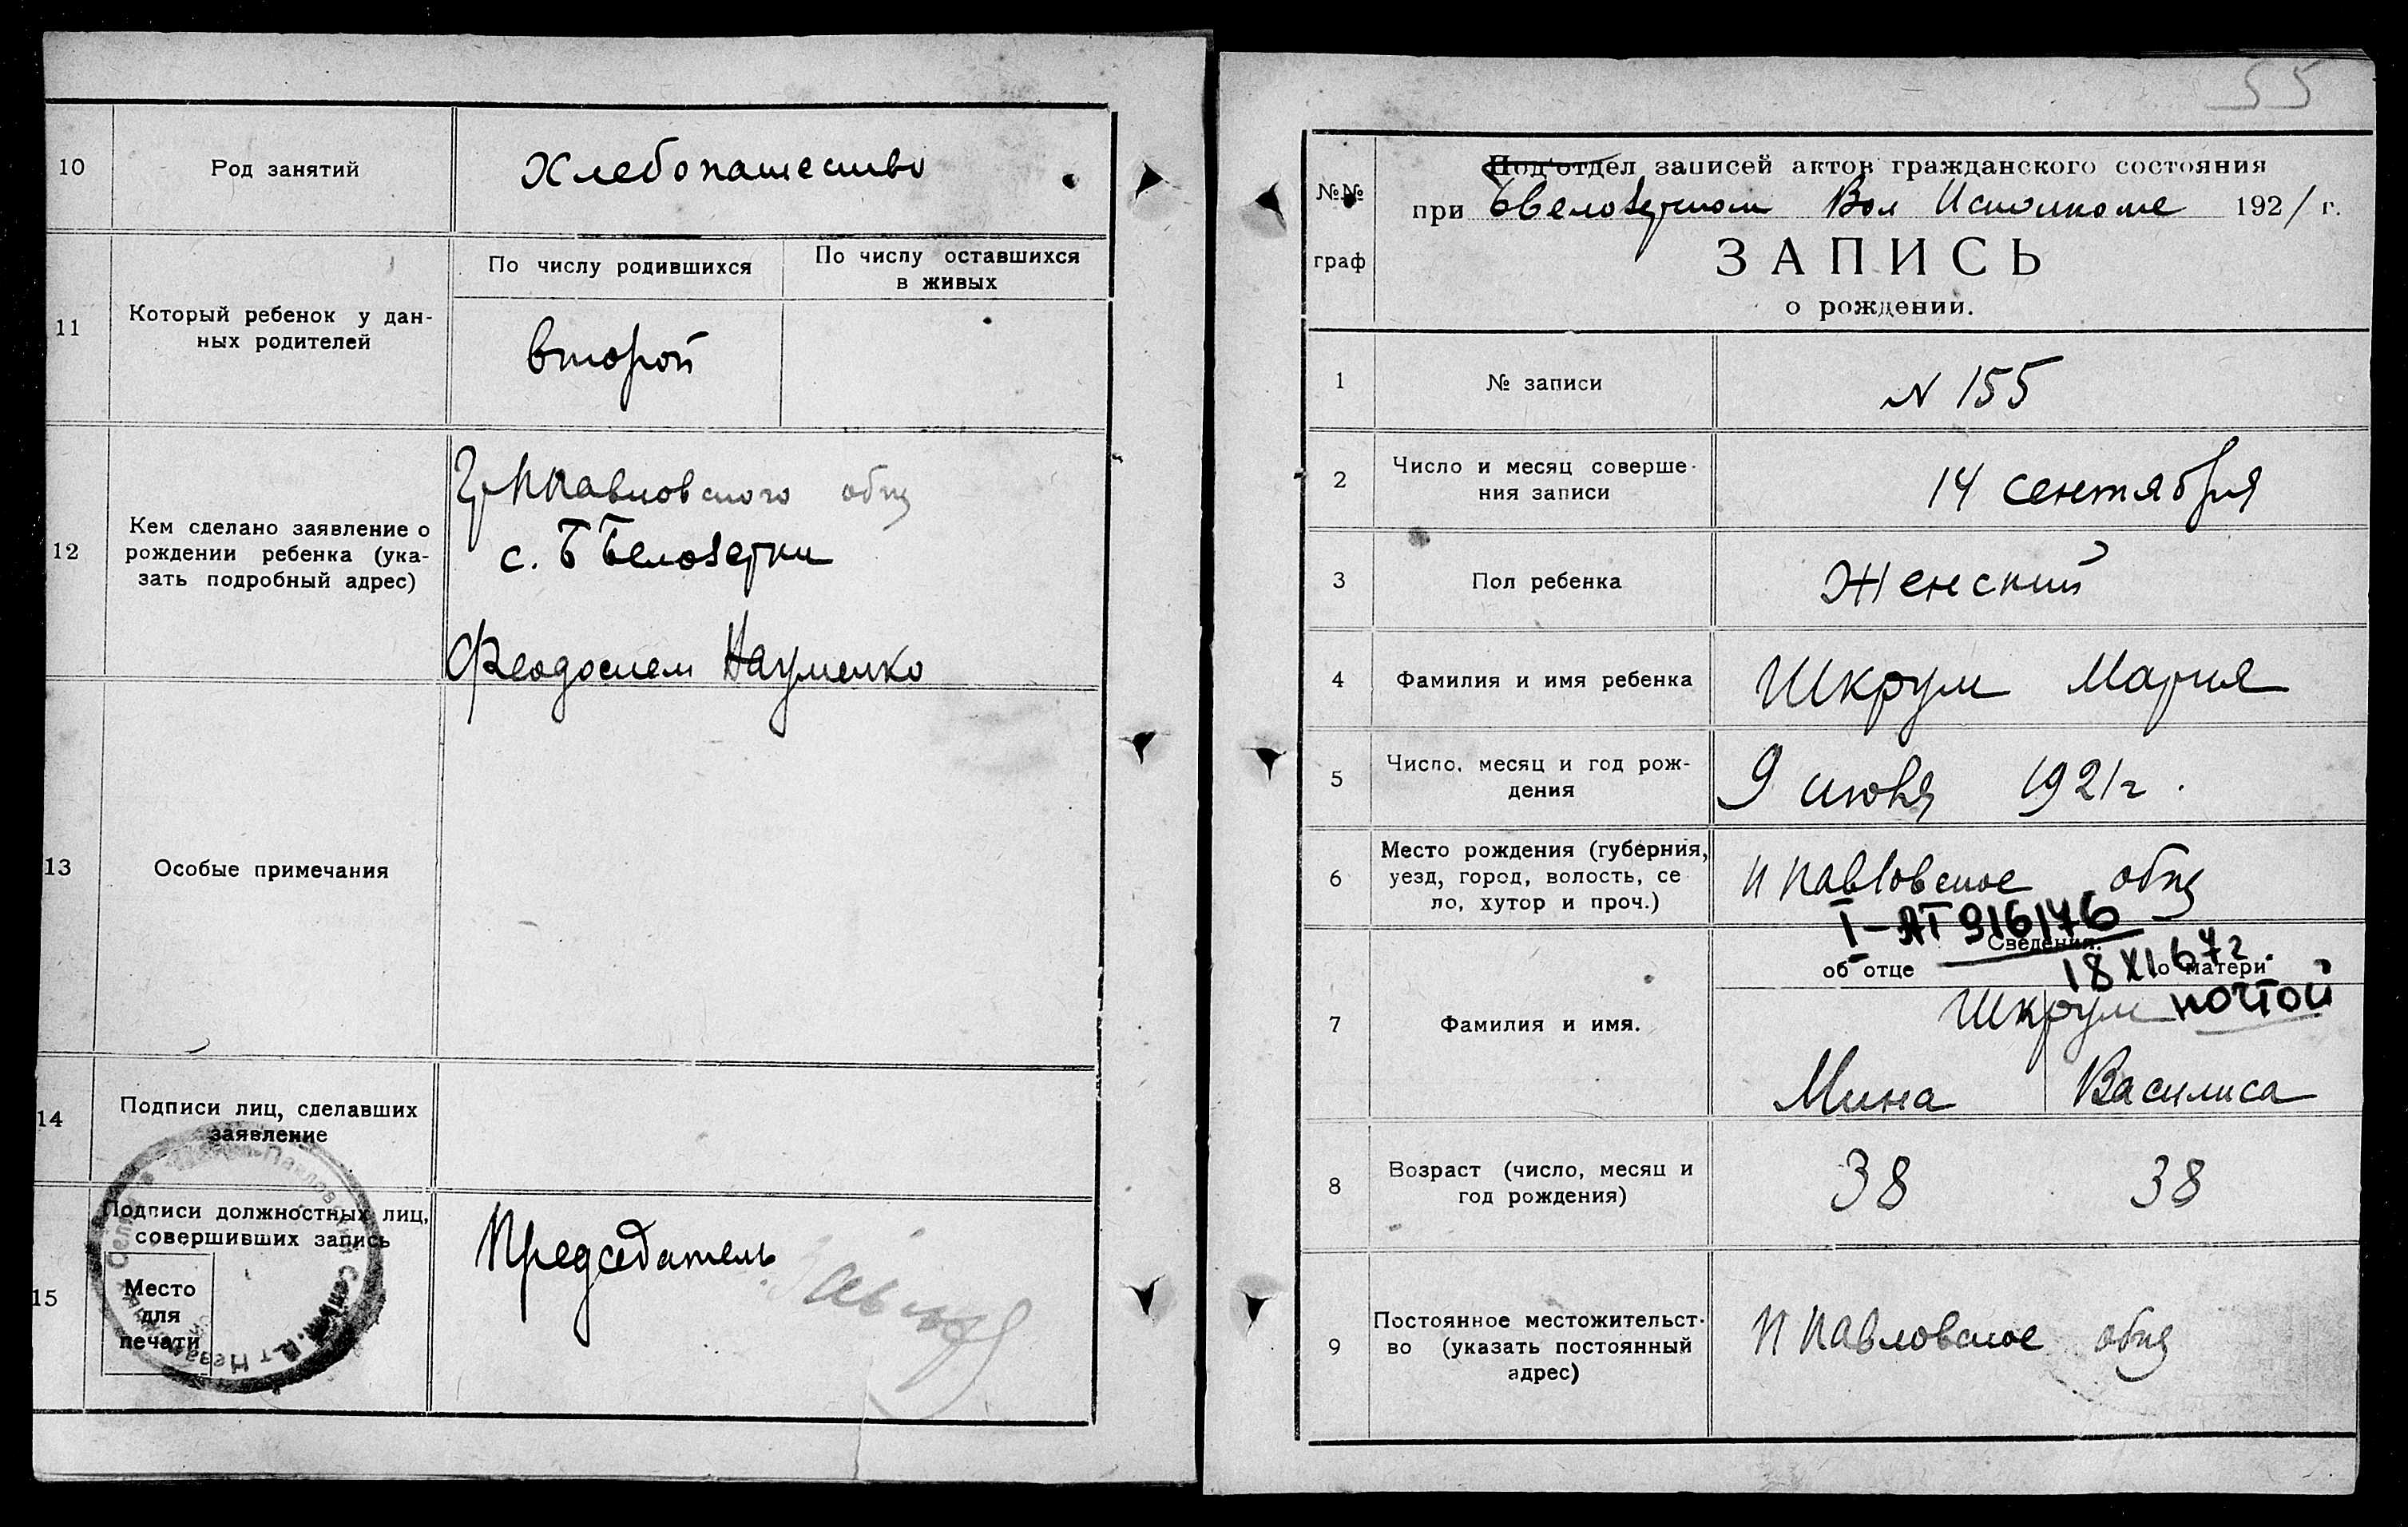 10
Род занятий
Хлебопашество
11
Который ребенок у дан-
ных родителей
По числу родившихся
По числу оставшихся
в живых
второй
12
Кем сделано заявление о
рождении ребенка (ука-
зать подробный адрес)
Гр ППавловского общ
с. Б Белозерки
Феодосием Науменко
13
Особые примечания
14
Подписи лиц, сделавших
заявление
15
Подписи должностных лиц,
совершивших запись
Место
для
печати
Председатель
55
№№
граф
Под'отдел записей актов гражданского состояния
при ББелозерском Вол Исполкоме 1921 г.
ЗАПИСЬ
о рождении.
1
№ записи
N 155
2
Число и месяц соверше-
ния записи
14 сентября
3
Пол ребенка
Женский
4
Фамилия и имя ребенка
Шкрум Мария
5
Число, месяц и год рож-
дения
9 июня 1921г.
6
Место рождения (губерния,
уезд, город, волость, се
ло, хутор и проч.)
П Павловское общ
I-АТ 916176
Сведения.
об отце
о матери
18 XI 67г.
почтой
7
Фамилия и имя.
Шкрум
Мина
Василиса
8
Возраст (число, месяц и
год рождения)
38
38
9
Постоянное местожительст-
во (указать постоянный
адрес)
П Павловское общ